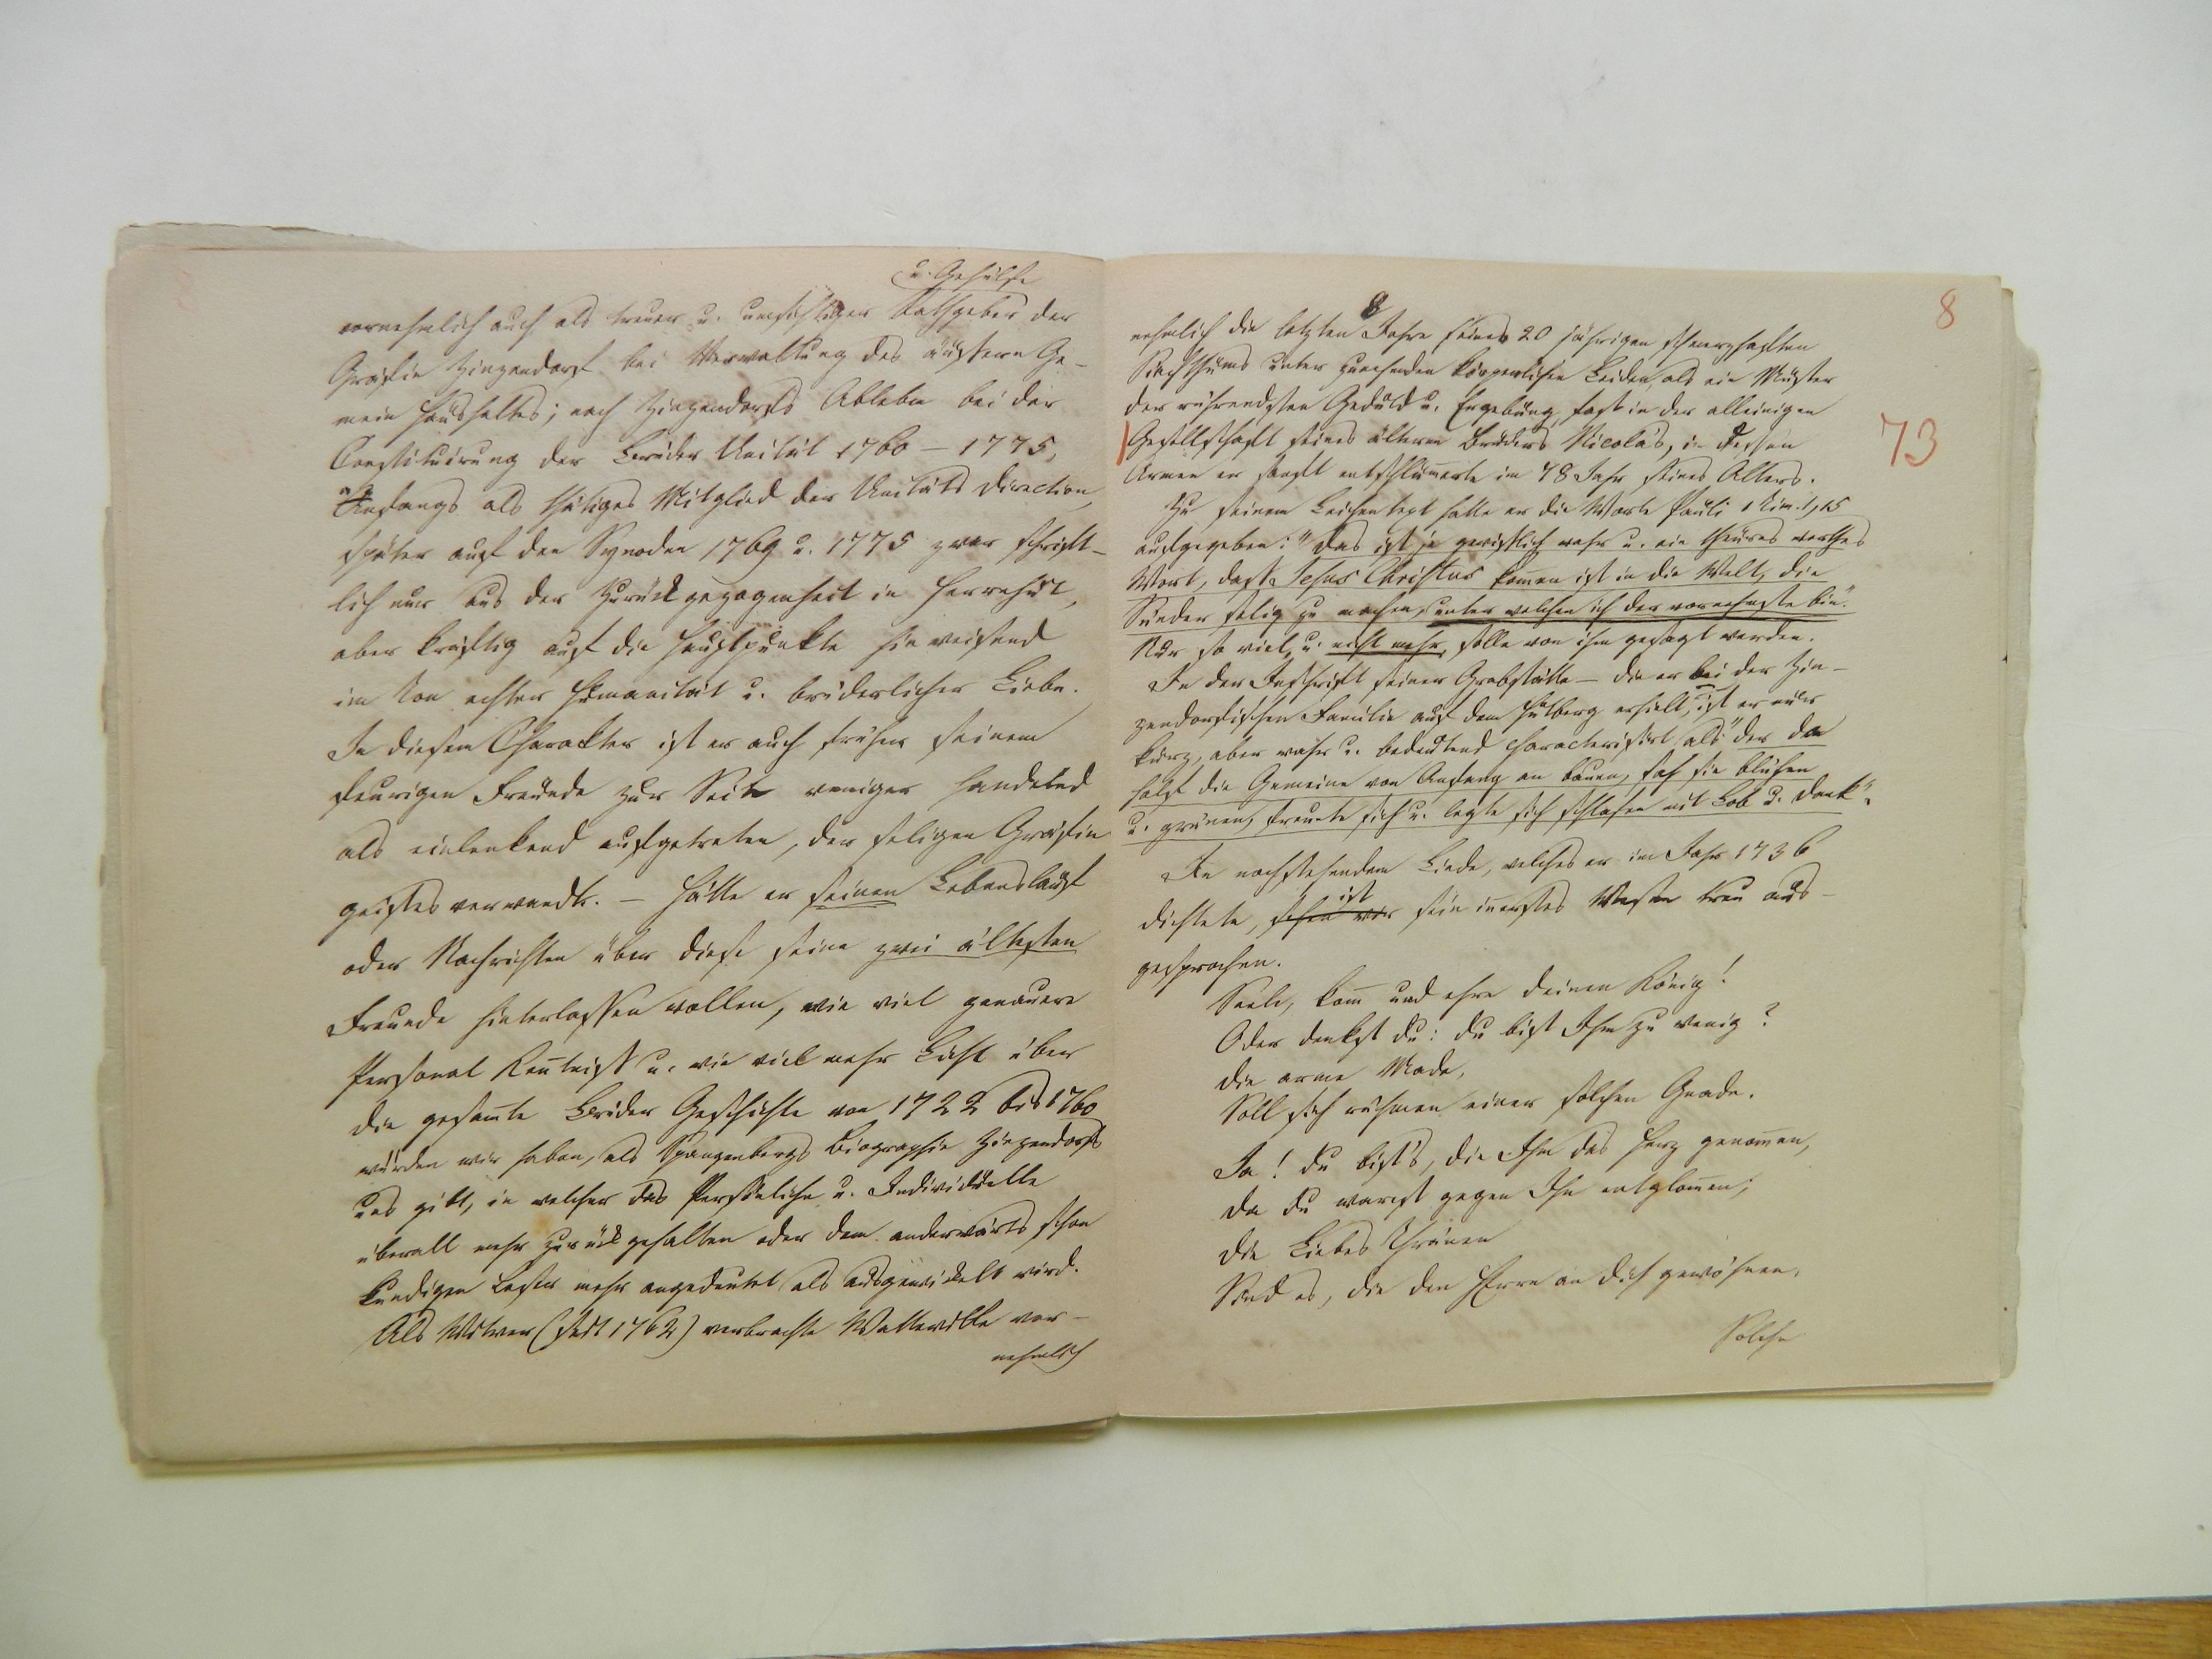 u. Gehülfe
vornehmlich auch als treuer u. umsichtiger Rathgeber der
Gräfin Zinzendorf bei Verwaltung des äußern Ge-
mein Haushaltes; nach Zinzendorfs Ableben bei der
Constituirung der Brüder Unität 1760 – 1775,
Anfangs als thätiges Mitglied der Unitäts Direction,
später auf den Synoden 1769 u. 1775 zwar schrift-
lich nur aus der Zurückgezogenheit in Herrnhut,
aber kräftig auf die Hauptpunkte hinweisend
im Ton echter Humanität u. brüderlicher Liebe.
In diesem Charakter ist er auch früher seinem
feurigen Freunde zur Seite weniger handelnd
als einlenkend aufgetreten, der seligen Gräfin
geistesverwandt. – Hätte er seinen Lebenslauf
oder Nachrichten über diese seine zwei ältesten
Freunde hinterlassen wollen, wie viel genauere
Personal Kentniß u. wie viel mehr Licht über
die gesamte Brüder Geschichte von 1722 bis 1760
würden wir haben, als Spangenbergs Biographie Zinzendorfs
uns gibt, in welcher das Persönliche u. Individuelle
überall mehr zurückgehalten oder dem anderwärts schon
kundigen Leser mehr angedeutet als ausgewickelt wird.
Als Witwer (seit 1762) verbrachte Watteville vor-
nehmlich
8
nehmlich die letzten 8 Jahre seines 20 jährigen schmerzhaften
Siechthums unter zunehmenden körperlichen Leiden, als ein Muster
der rührendsten Geduld u. Ergebung, fast in der alleinigen
Gesellschaft seines älteren Bruders Nicolas, in dessen
73
Armen er sanft entschlummerte im 78 Jahr seines Alters.
Zu seinem Leichentext hatte er die Worte Pauli 1 Tim. 1, 15
aufgegeben: "Das ist je gewißlich wahr u. ein theures werthes
Wort, daß Jesus Christus komen ist in die Welt, die
Sünder selig zu machen, unter welchen ich der vornehmste bin".
Nur so viel, u. nicht mehr, solle von ihm gesagt werden.
In der Inschrift seiner Grabstätte – die er bei der Zin-
zendorfischen Familie auf dem Hutberg erhielt, ist er nur
kurz, aber wahr u. bedeutend characterisirt als "der da
half die Gemeine von Anfang an bauen, sah sie blühen
u. grünen, freute sich u. legte sich schlafen mit Lob u. Dank".
In nachstehendem Liede, welches er im Jahr 1736
ist
dichtete, sehen wir sein inerstes Wesen treu aus-
gesprochen.
Seele, kom und ehre deinen König!
Oder denkst du: du bist Ihm zu wenig?
Die arme Made,
Soll sich rühmen einer solchen Gnade.
Ja! du bist's, die Ihm das Herz genomen,
da du warest gegen Ihn entglomen;
Die Liebes Thränen
Sind es, die den HErrn an dich gewöhnen.
Solche